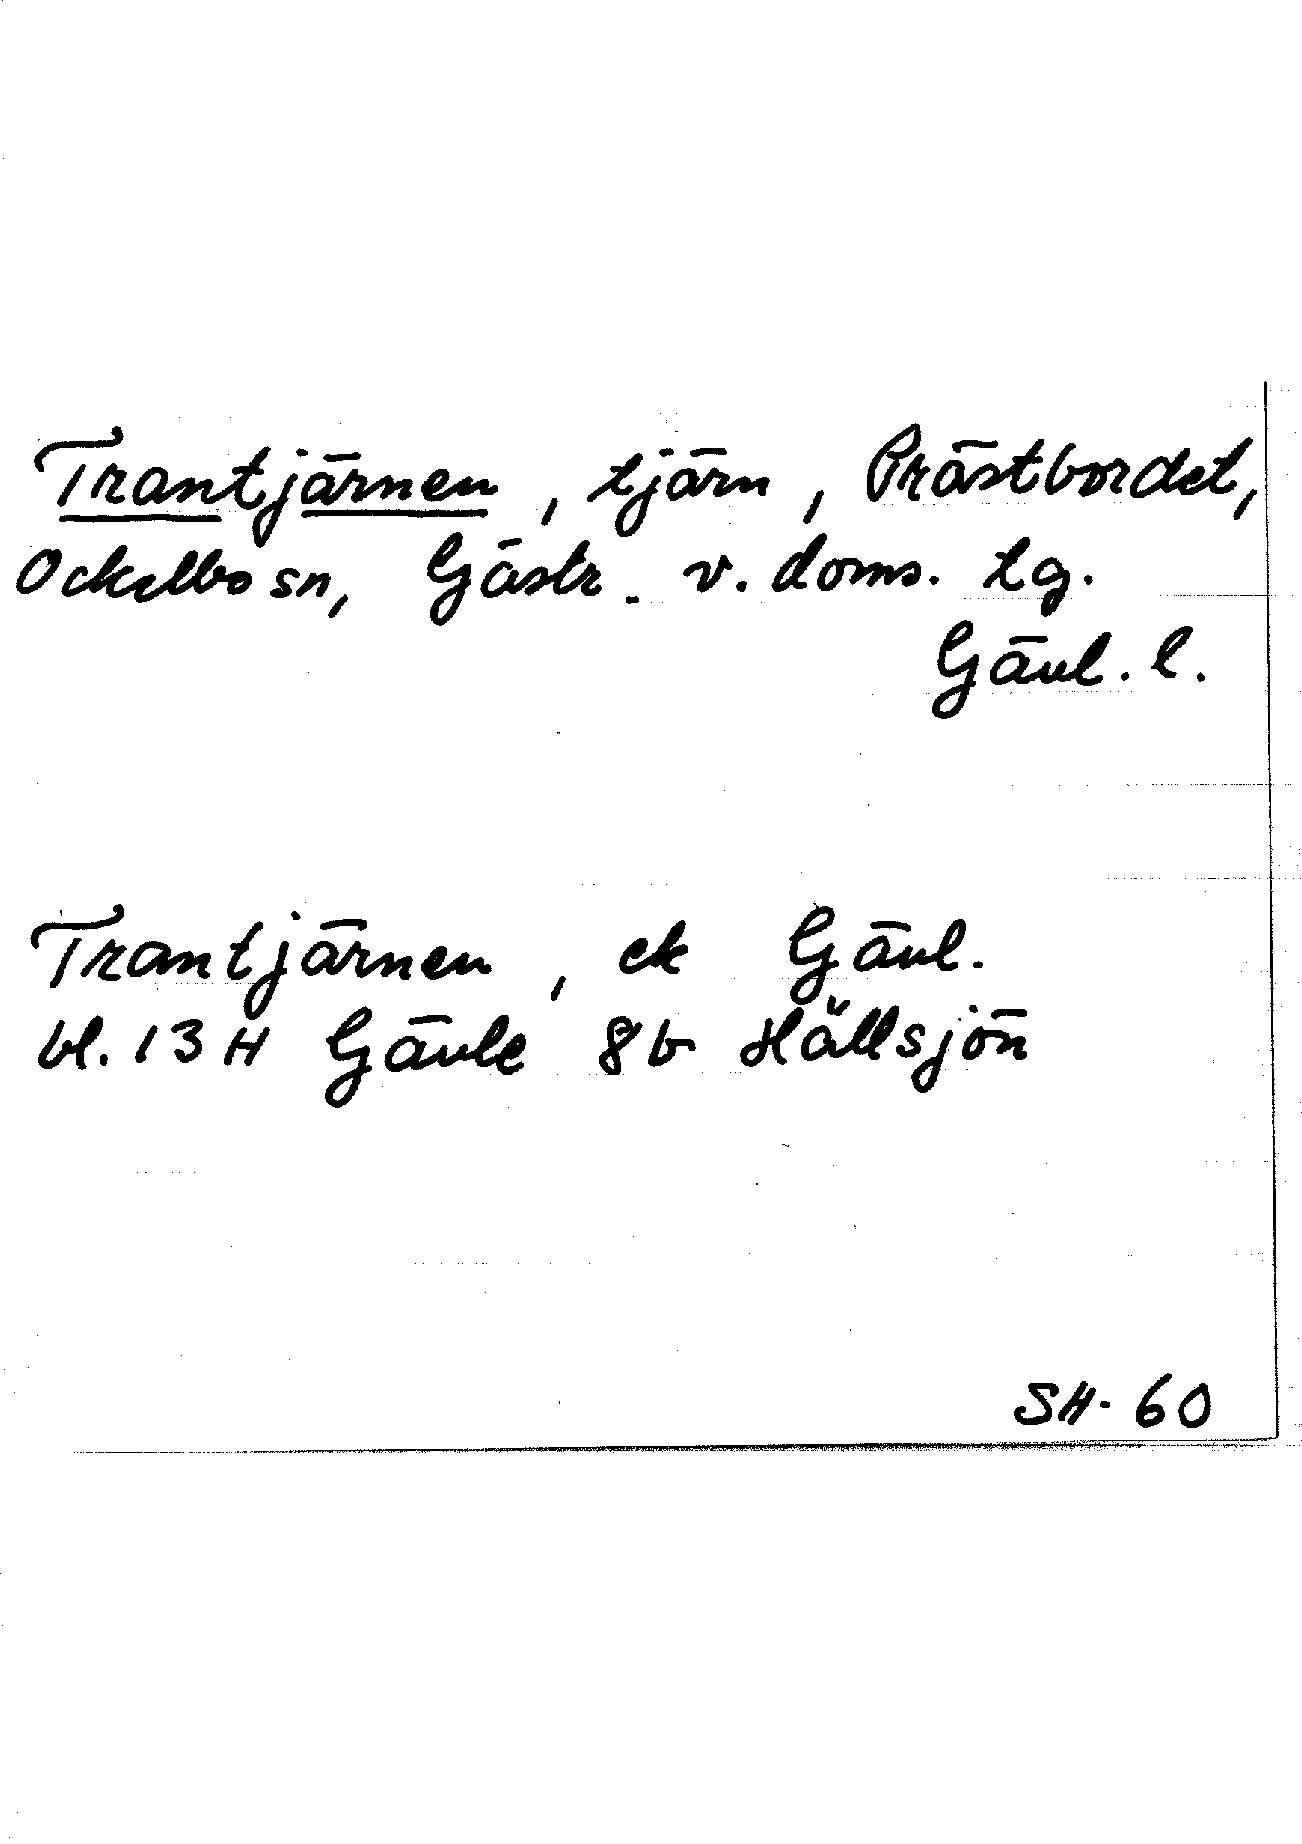 Trantjärnen, tjärn, Prästbordet,
Ockelbo sn, Gästr. v. doms. tg.
Gävl. l.
Trantjärnen, ek Gävl.
bl. 13H Gävle 8b Hällsjön
SH- 60